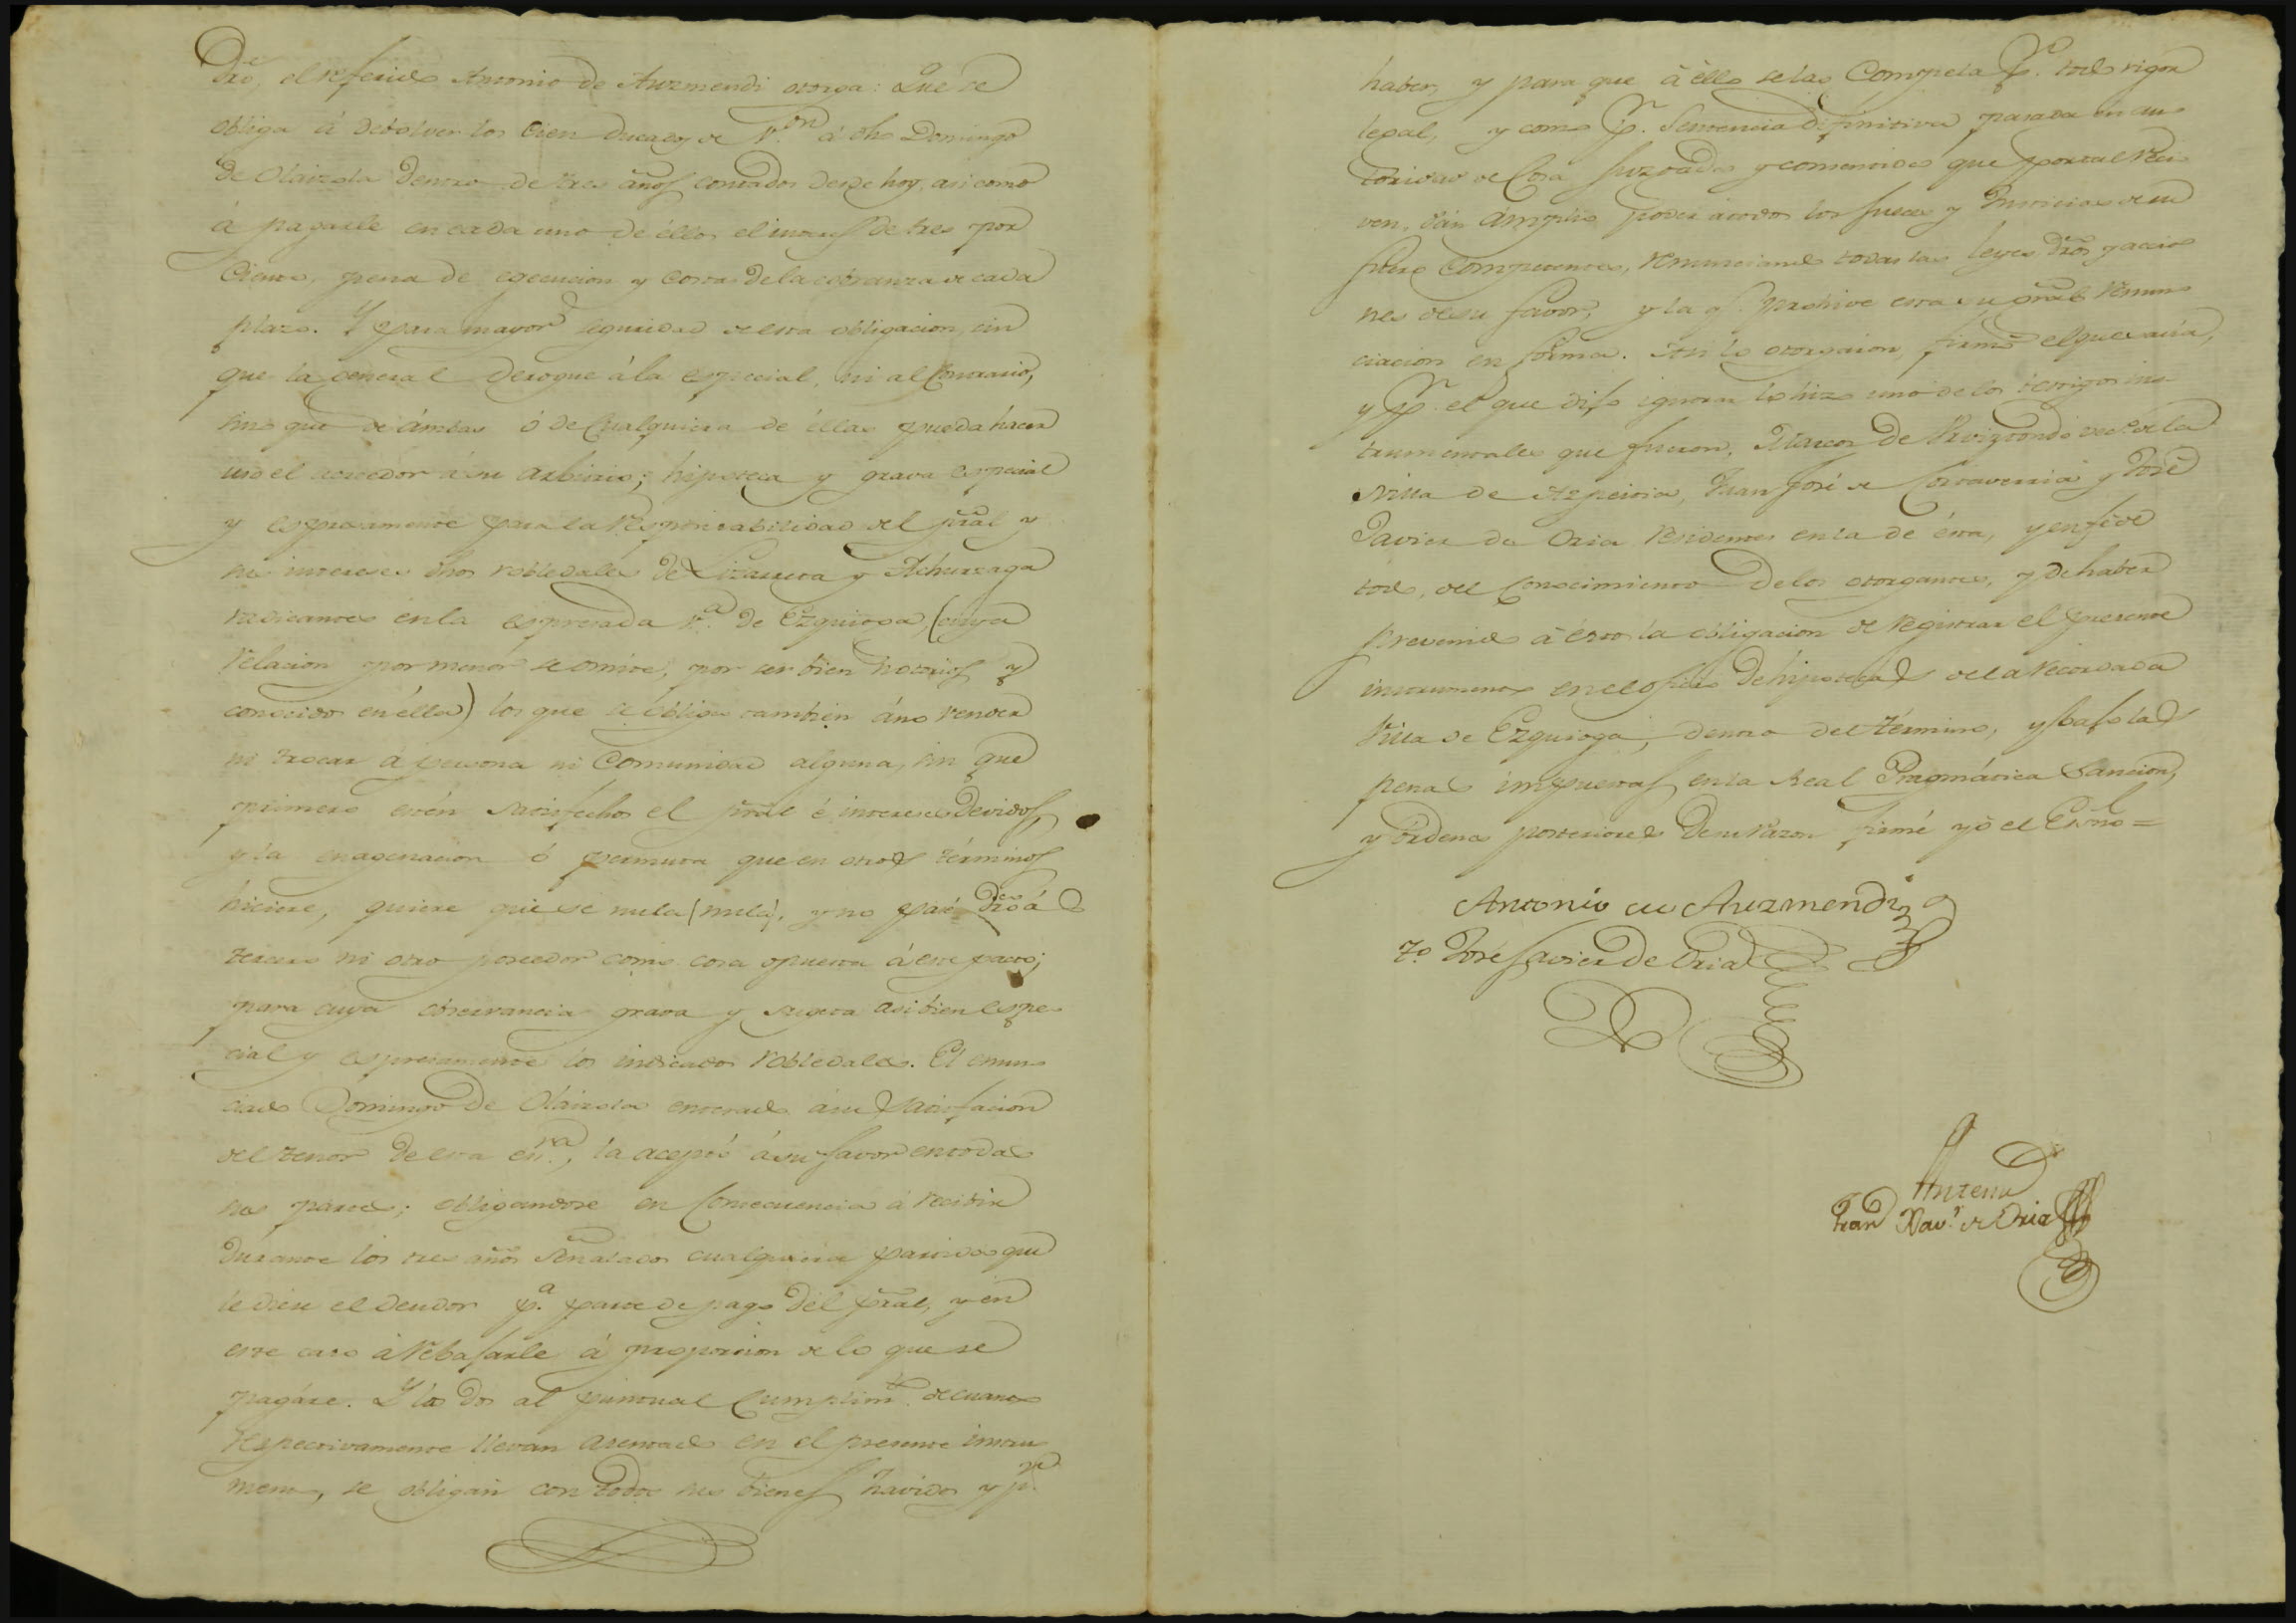 Dro, el referido Antonio de Auzmendi otorga: Que se
obliga á debolver los Cien ducados de v.on á dho Domingo
de Olaizola dentro de tres años contados desde hoy, asi como
á pagarle en cada uno de éllos el interes de tres por
Ciento, pena de egecucion y costas de la cobranza de cada
plazo. Y para mayor seguridad de esta obligacion, sin
que la general derogue á la especial, ni al Contrario,
sino que de ámbas ó de Cualquiera de éllas pueda hacer
uso el acreedor á su arbitrio; hipoteca y grava especial
y espresamente para la responsabilidad del pral y
sus intereses dhos robledales de Lizarreta y Achurzaga
radicantes en la espresada v.a de Ezquioga, (cuya
relacion por menór se omite, por ser bien notorios y
conocidos en élla) los que se obliga tambien á no vender
ni trocar á persona ni Comunidad alguna, sin que
primero estén satisfechos el pral é intereses devidos,
y la enagenacion ó permuta que en otros términos
hiciere, quiere que se nula (nula), y no pase dro á
tercero ni otro poseedor como cosa opuesta á este pacto;
para cuya observancia grava y sugeta asi bien espe
cial y espresamente los indicados robledales. El enun
ciado Domingo de Olaizola enterado á su satisfacion
del tenor de esta es.ra, la aceptó á su favor en todas
sus partes; obligandose en Consecuencia á recibir
durante los tres años señalados cualquiera partida que
le diere el deudor p.a parte de pago del pral, y en
este caso á rebajarle á proporcion de lo que se
pagáre. Y los dos al puntual Cumplim.to de cuanto
respectivamente llevan asentado en el presente instru
mento, se obligan con todos sus bienes havidos y p.r
haber, y para que á éllo se las Compela p.r todo rigor
legal, y como p.r Sentencia difinitiva pasada en au
toridad de Cosa juzgada y consentida que por tal reci
ven, dán ámplio poder á todos los Jueces y Justicias de su
fuero Competentes, renunciando todas las leyes dros y accio
nes de su favor, y la q.e prohive esta su gral renun
ciacion en forma. Asi lo otorgaron, firmó el que savia,
y p.r el que dijo ignorar lo hizo uno de los testigos ins
trumentales que fueron, Marcos de Urvizcondo vec.o de la
Villa de Azpeitia, Juan José de Cortaverria y José
Javier de Oria residentes en la de ésta, y en fé de
todo, del Conocimiento de los otorgantes, y de haber
prevenido á éstos la obligacion de registrar el presente
instrumento en el oficio de hipotecas de la recordada
Villa de Ezquioga, dentro del término, y bajo las
penas impuestas en la Real Pragmática Sancion,
y órdenes posteriores de su razon firmé yo el Esno =
Antonio de Auzmendi
t.o José Javier de Oria
Antemi
Fran Xav.r de Oria